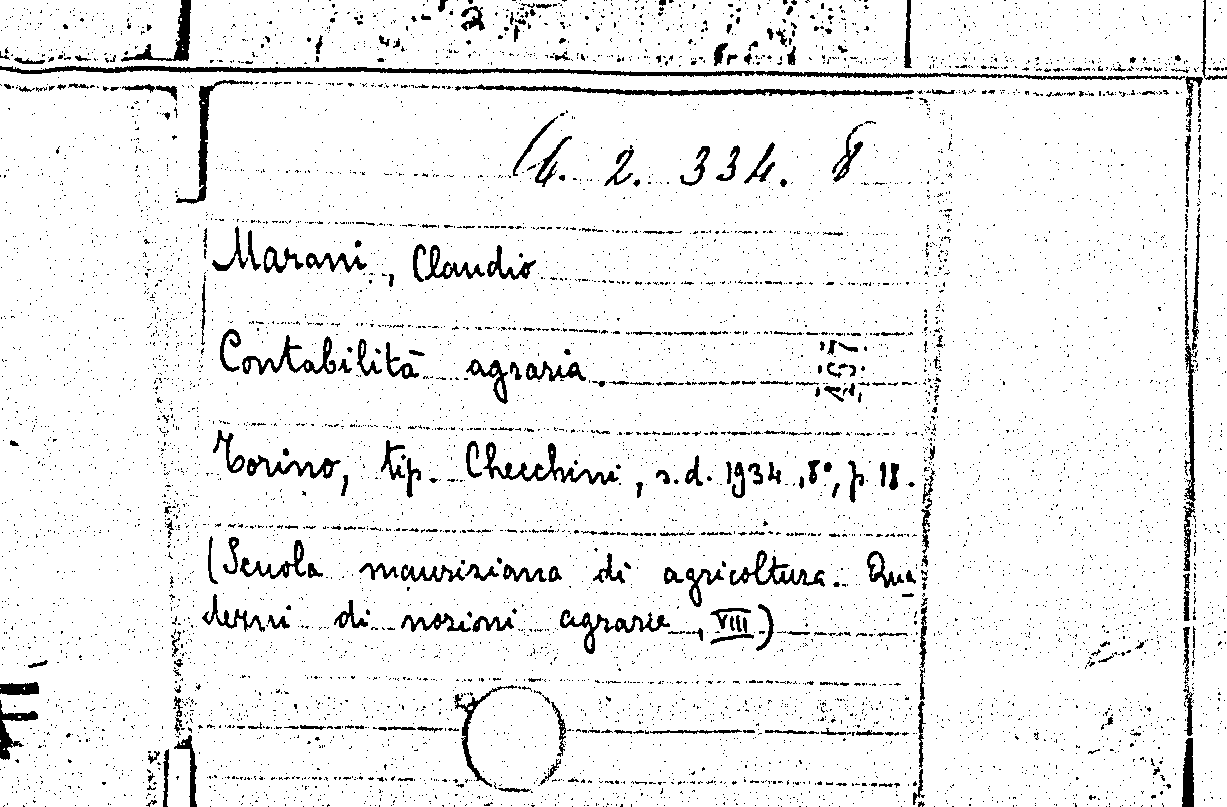 4. 2. 334. 8
Marani, Claudio
Contabilità agraria.
Torino, tip. Checchini, s.d. 1934, 8°, p 18.
(Scuola mauriziana di agricoltura. Qua
derni di nozioni agrarie, VIII)